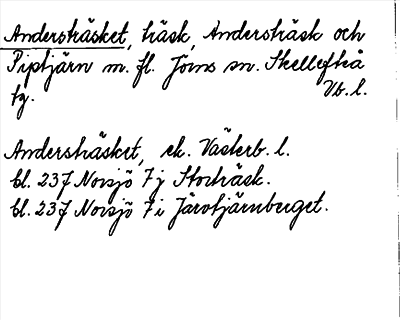 Andersträsket, träsk, Andersträsk och
Piptjärn m. fl. Jörns sn. Skellefteå
tg. Vb. l.
Andersträsket, ek. Västerb. l.
bl. 237 Norsjö 7 j Storträsk.
bl. 237 Norsjö 7 i Järvtjärnberget.